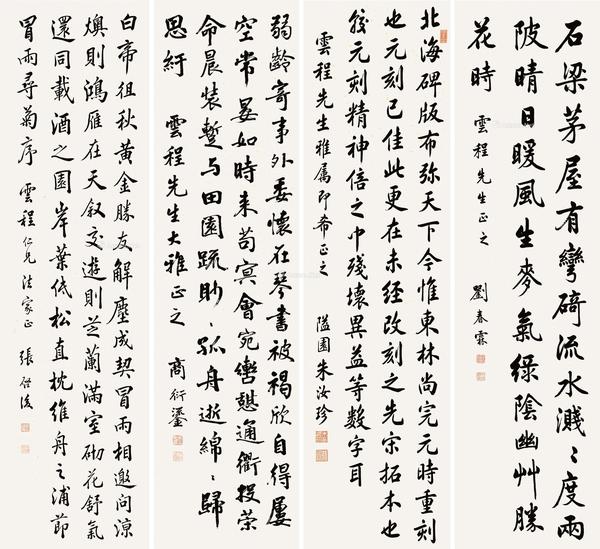 石梁茅屋有彎碕流水濺〻度兩
陂晴日暖風生麥氣綠陰幽艸勝
花時 雲程先生正之 劉春霖
北海碑版布弥天下今惟東林尚完元時重刻
也元刻已佳此更在未經改刻之先宋拓本也
較元刻精神倍之中殘壞異益等數字耳
雲程先生雅属即希正之 隘園朱汝珍
弱齡寄事外委懷在琴書被褐欣自得屢
空常晏如時来苟冥會宛轡憇通衢投策
命晨裝暫与田園疏眇〻孤舟逝綿〻歸
思紆 雲程先生大雅正之 商衍鎏
白帝徂秋黄金勝友解塵成契冒雨相邀問涼
燠則鴻雁在天叙交遊則芝蘭滿室砌花舒氣
還同載酒之園岸葉低松直枕維舟之浦節
冒雨尋菊序 雲程仁兄法家正 張啓後